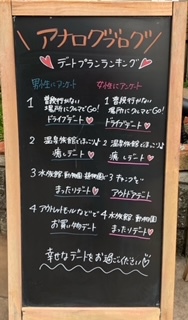 アナログブログ
デートプランランキング
男性にアンケート
女性にアンケート
1 普段行かない
場所にクルマでGO!
ドライブデート
1 普段行かない
場所にクルマでGO!
ドライブデート
2 温泉旅館でほっこり
癒しデート
2 温泉旅館でほっこり
癒しデート
3 水族館 動物園 植物園
まったりデート
3
アウトドアデート
4 アウトレットモールなど
お買い物デート
4 水族館 動物園
まったりデート
幸せなデートをお過ごしください